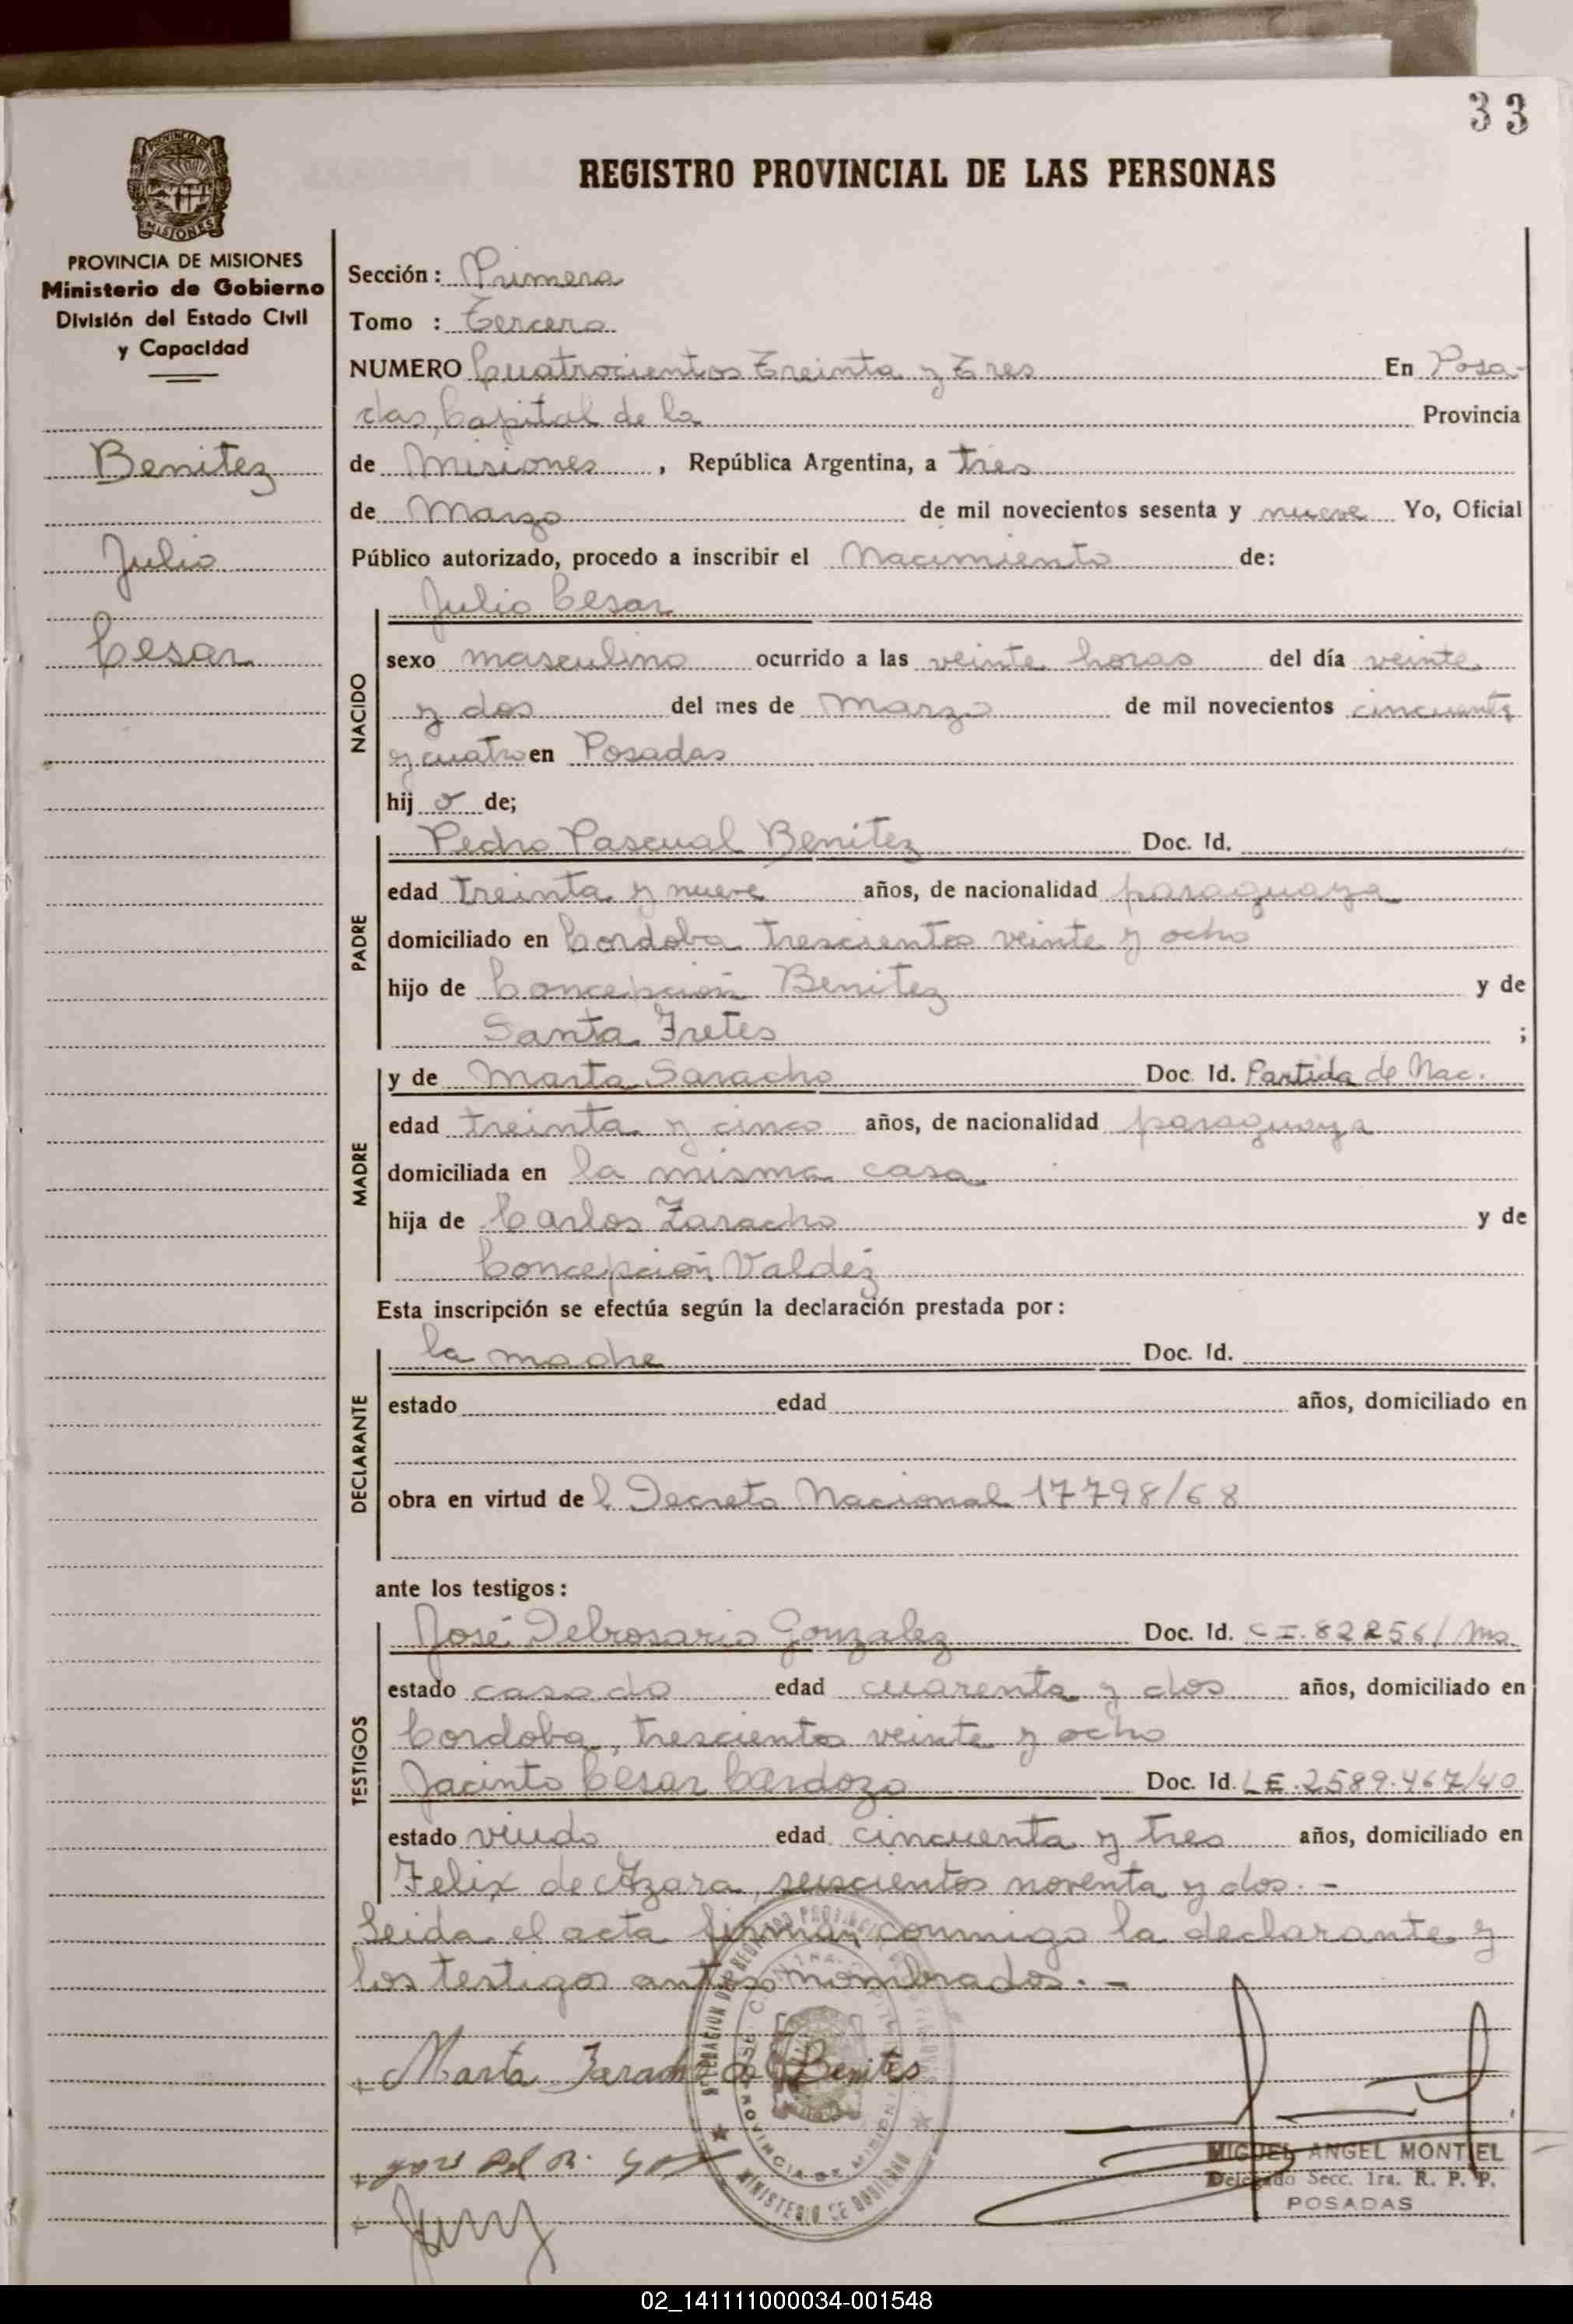 33
REGISTRO PROVINCIAL DE LAS PERSONAS
PROVINCIA DE MISIONES
Ministerio de Gobierno
División del Estado Civil
y Capacidad
Benitez
Julio
Cesar
Sección: Primera
Tomo : Tercero
NUMERO Cuatrocientos Treinta y Tres En Posa-
das, Capital de la Provincia
de Misiones, República Argentina, a tres
de Marzo de mil novecientos sesenta y nueve Yo, Oficial
Público autorizado, procedo a inscribir el Nacimiento de:
NACIDO
Julio Cesar
sexo masculino ocurrido a las veinte horas del día veinte
y dos del mes de Marzo de mil novecientos cincuenta
y cuatro en Posadas
hijo de;
PADRE
Pedro Pascual Benitez Doc. Id.
edad treinta y nueve años, de nacionalidad paraguaya
domiciliado en Cordoba trescientos veinte y ocho
hijo de Concepción Benitez y de
Santa Fretes ;
MADRE
y de Marta Saracho Doc. Id. Partida de Nac.
edad treinta y cinco años, de nacionalidad paraguaya
domiciliada en la misma casa
hija de Carlos Zaracho y de
Concepción Valdéz
Esta inscripción se efectúa según la declaración prestada por:
DECLARANTE
la madre Doc. Id.
estado edad años, domiciliado en
obra en virtud del Decreto Nacional 17798/68
ante los testigos:
TESTIGOS
José Delrosario Gonzalez Doc. Id. C.I. 82256/Ms.
estado casado edad cuarenta y dos años, domiciliado en
Cordoba, trescientos veinte y ocho
Jacinto Cesar Cardozo Doc. Id. L.E. 2589.467/40
estado viudo edad cincuenta y tres años, domiciliado en
Felix de Azara, seiscientos noventa y dos.-
Leida el acta firman conmigo la declarante y
los testigos antes nombrados.-
Marta Zaracho de Benites
MINISTERIO DE GOBIERNO
PROVINCIA DE MISIONES
MIGUEL ANGEL MONTIEL
Delegado Secc. 1ra. R. P. P.
POSADAS
02_141111000034-001548